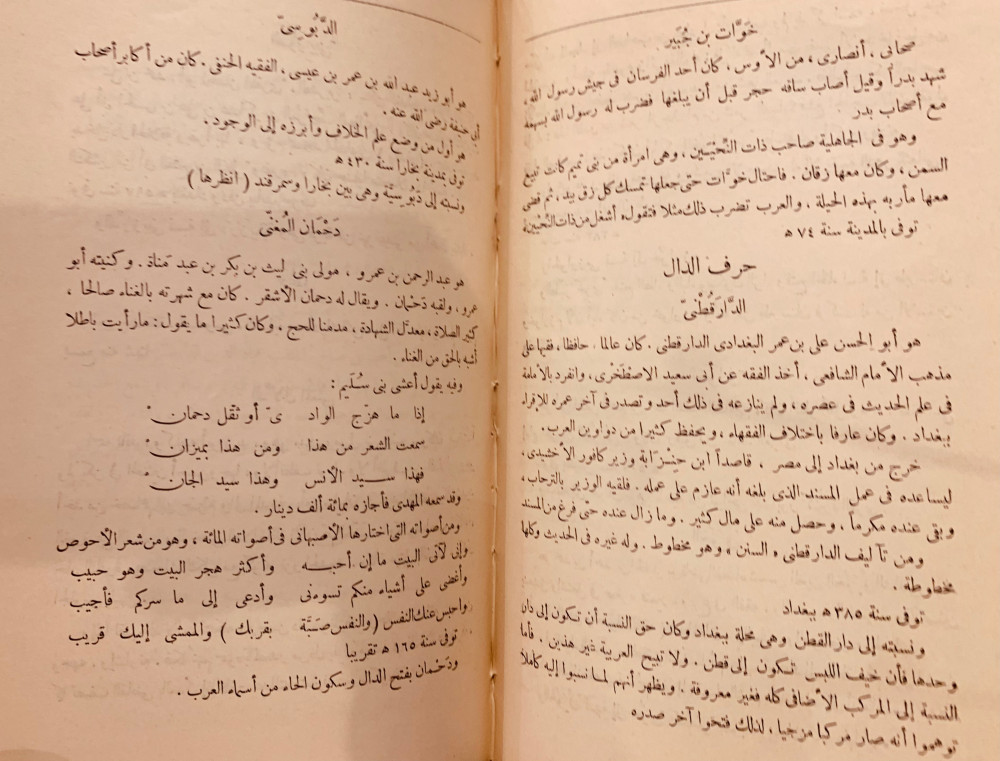 خَوَّات بن جُبَير
صحابى ، أنصارى ، من الأوس ، كان أحد الفرسان فى جيش رسول الله ،
شهد بدراً وقيل أصاب ساقه حجر قبل أن يبلغها فضرب له رسول الله بسهمه
مع أصحاب بدر
وهو فى الجاهلية صاحب ذات النِّحْيَيْن ، وهى امرأة من بنى تميم كانت تبيع
السمن ، وكان معها زقان . فاحتال خوَّات حتى جعلها تمسك كل زق بيد ، ثم قضى
معها مأربه بهذه الحيلة ، والعرب تضرب ذلك مثلا فتقول « أشغل من ذات النِّحْيَيْن »
توفى بالمدينة سنة ٧٤ ه
حرف الدال
الدَّارَقُطْنىّ
هو أبو الحسن على بن عمر البغدادى الدارقطنى . كان عالما . حافظا ، فقيها على
مذهب الأمام الشافعى ، أخذ الفقه عن أبى سعيد الاصْطَخْرى ، وانفرد بالأمامة
فى علم الحديث فى عصره ، ولم ينازعه فى ذلك أحد وتصدر فى آخر عمره للإقراء
ببغداد . وكان عارفا باختلاف الفقهاء ، ويحفظ كثيرا من دواوين العرب .
خرج من بغداد إلى مصر ، قاصداً ابن حِنْزَابة وزير كافور الأخشيدى ،
ليساعده فى عمل المسند الذى بلغه أنه عازم على عمله . فلقيه الوزير بالترحاب ،
وبقى عنده مكرماً ، وحصل منه على مال كثير . وما زال عنده حتى فرغ من المسند
ومن تآليف الدارقطنى « السنن » وهو مخطوط . وله غيره فى الحديث وكلها
مخطوطة .
توفى سنة ٣٨٥ ه ببغداد
ونسبته إلى دار القطن وهى محلة ببغداد وكان حق النسبة أن تكون إلى دار
وحدها فأن خيف اللبس تكون إلى قطن . ولا تبيح العربية غير هذين . فأما
النسبة إلى المركب الأضافى كله فغير معروفة . ويظهر أنهم لما نسبوا إليه كاملا
توهموا أنه صار مركبا مزجيا ، لذلك فتحوا آخر صدره
الدَّبُوسىّ
هو أبو زيد عبد الله بن عمر بن عيسى ، الفقيه الحنفى . كان من أكابر أصحاب
أبى حنيفة رضى الله عنه .
هو أول من وضع علم الخلاف وأبرزه إلى الوجود .
توفى بمدينة بخارا سنة ٤٣٠ ه
ونسبته إلى دَبُوسيَّة وهى بين بخارا وسمرقند ( انظرها )
دَحْمَان المُغَنّى
هو عبد الرحمن بن عمرو ، مولى بنى ليث بن بكر بن عبد مَناة . وكنيته أبو
عمرو ، ولقبه دَحْمان . ويقال له دحمان الأشقر . كان مع شهرته بالغناء صالحا ،
كثير الصلاة ، معدَّل الشهادة ، مدمنا للحج ، وكان كثيرا ما يقول : مارأيت باطلا
أشبه بالحق من الغناء .
وفيه يقول أعشى بنى سُلَيم :
إذا ما هزّج الواد ىّ أو ثقّل دحمان ْ
سمعت الشعر من هذا ومن هذا بميزان ْ
فهذا سيد الأنس وهذا سيد الجان ْ
وقد سمعه المهدى فأجازه بمائة ألف دينار .
ومن أصواته التى اختارها الأصبهانى فى أصواته المائة ، وهو من شعر الأحوص
وإنى لآتى البيت ما إن أحبه وأكثر هجر البيت وهو حبيب
وأغضى على أشياء منكم تسوءنى وأدعى إلى ما سركم فأجيب
واحبس عنك النفس (والنفس صَبّة بقربك ) والممشى إليك قريب
توفى سنة ١٦٥ ه تقريبا
ودَحْمان بفتح الدال وسكون الحاء من أسماء العرب .